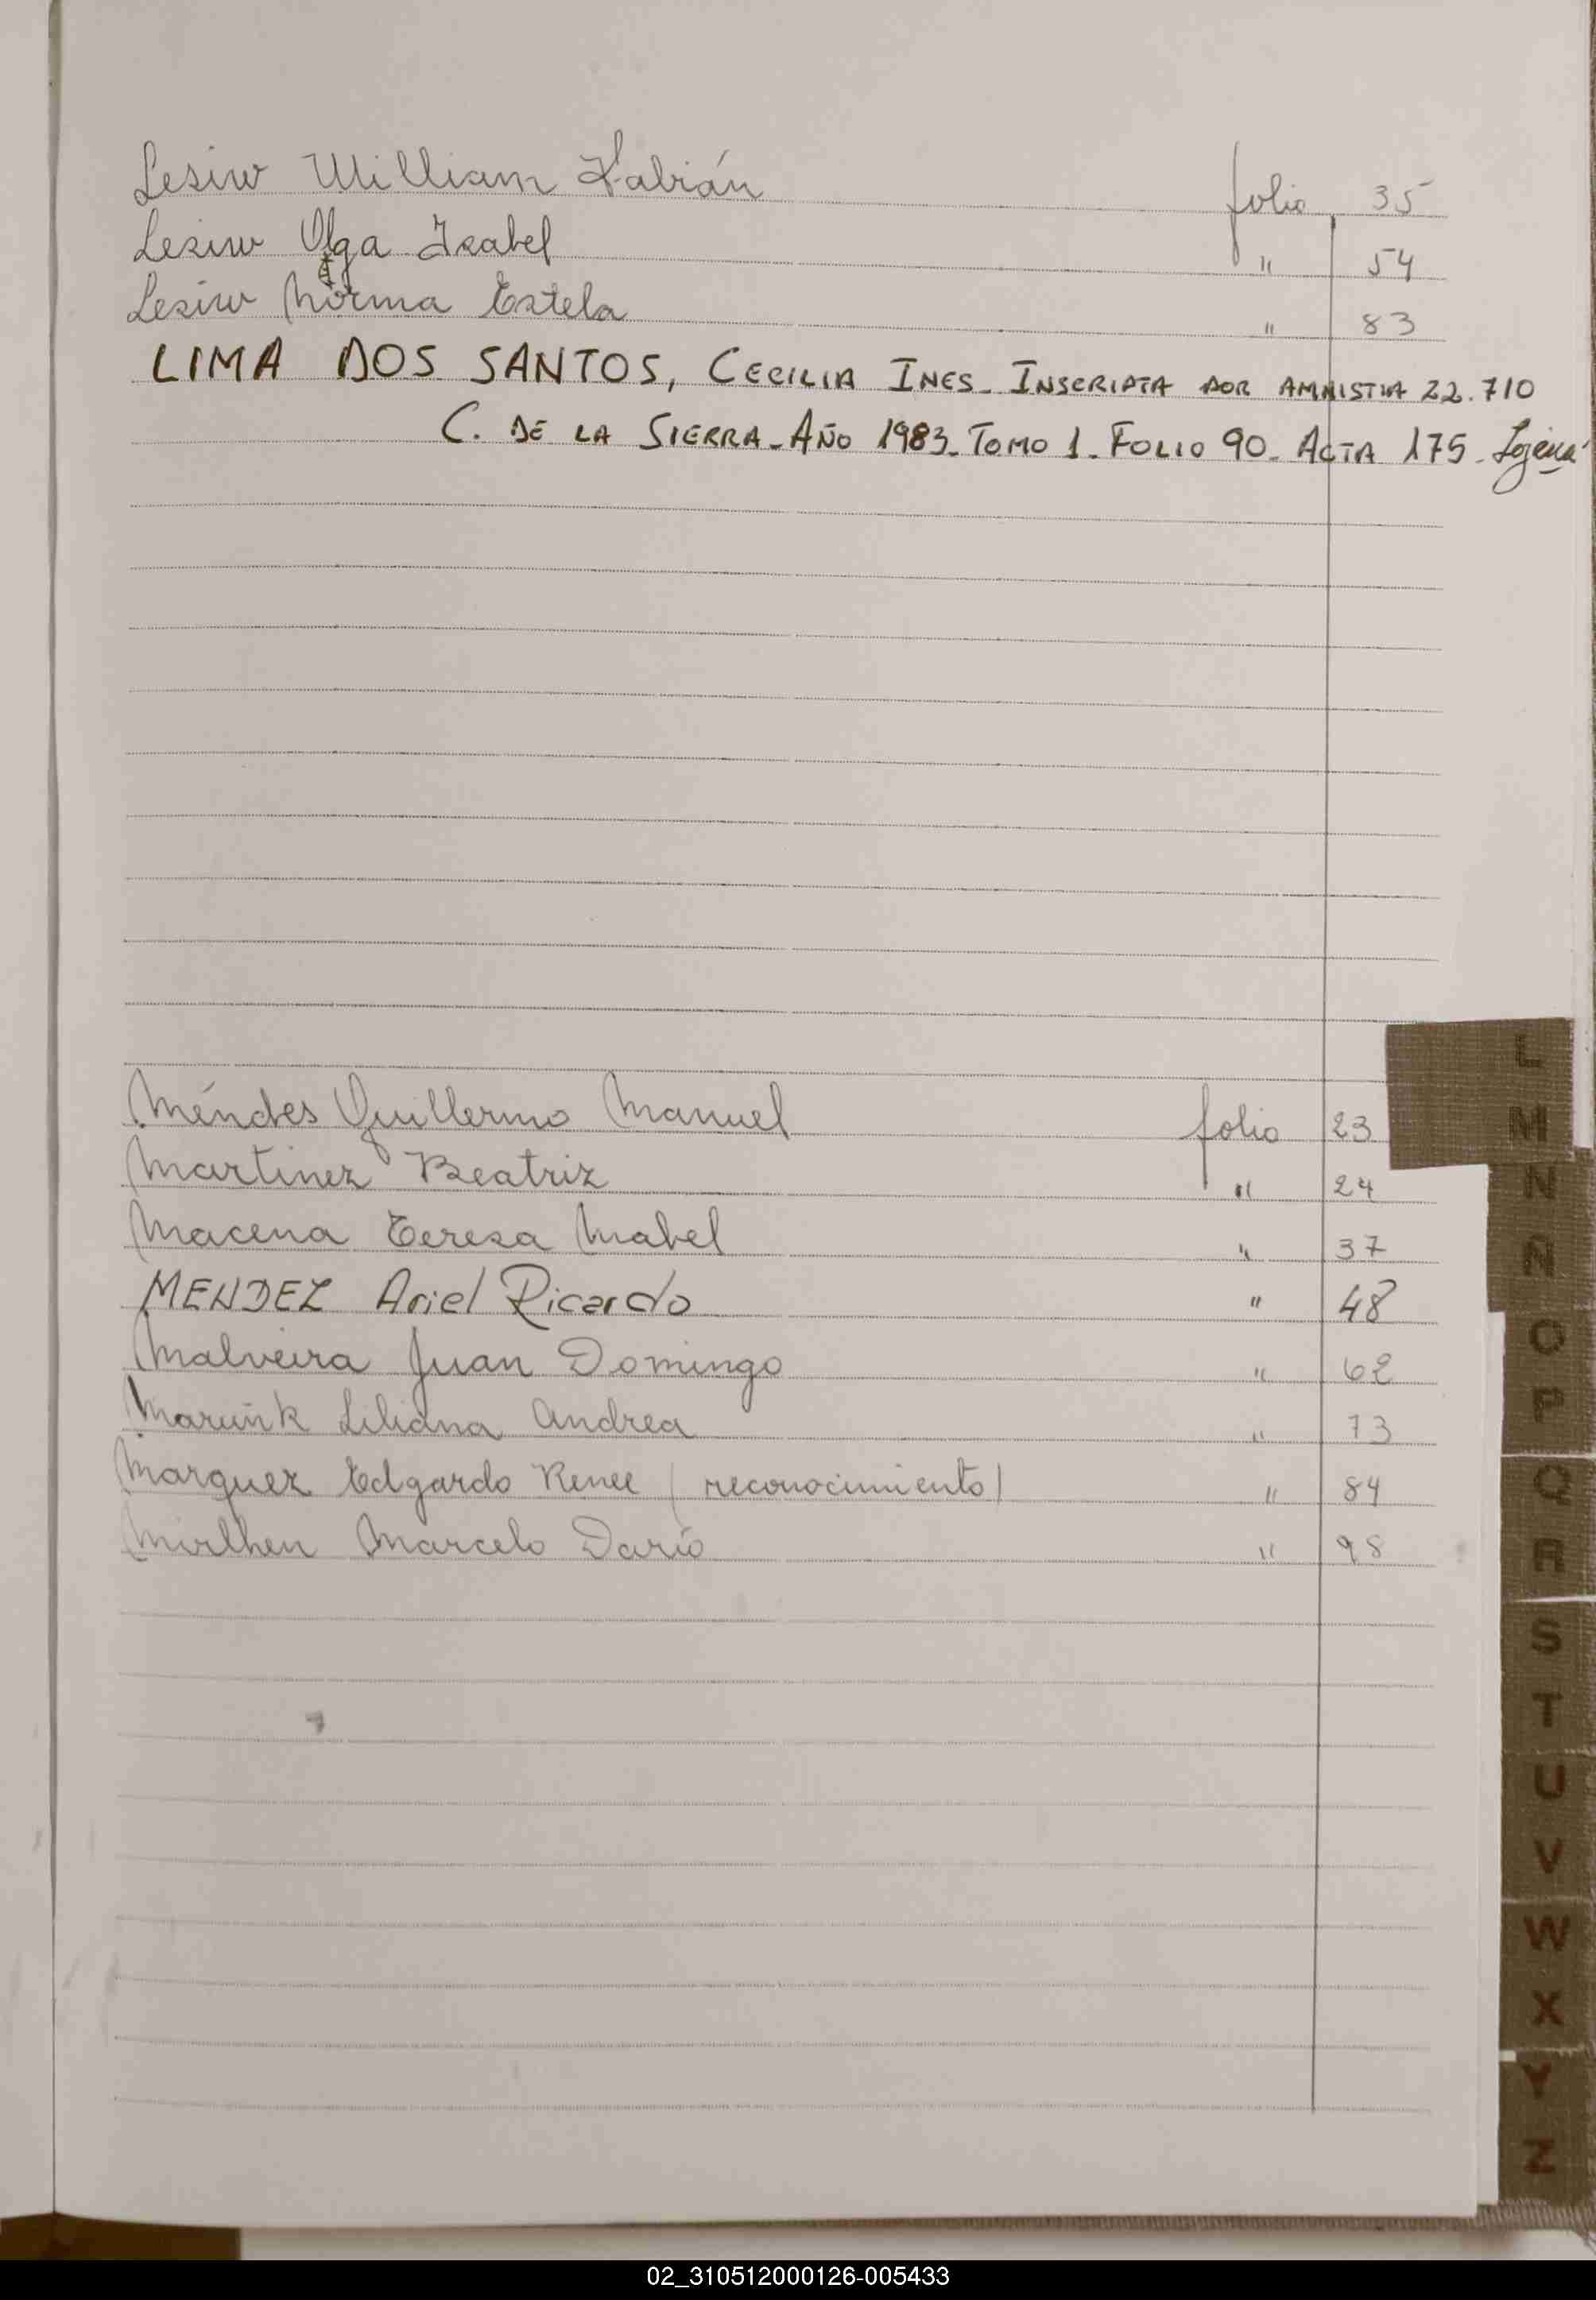 Lesiw William Fabián folio 35
Lesiw Olga Isabel " 54
Lesiw Norma Estela " 83
LIMA DOS SANTOS, CECILIA INES. INSCRIPTA POR AMNISTIA 22.710
C. DE LA SIERRA. AÑO 1983. TOMO 1. FOLIO 90. ACTA 175.
Méndes Guillermo Manuel folio 23
Martinez Beatriz " 24
Macena Teresa Mabel " 37
MENDEZ Ariel Ricardo " 48
Malveira Juan Domingo " 62
Liliana Andrea " 73
Marquez Edgardo Renee (reconocimiento) " 84
Mirlhen Marcelo Darío " 98
L
M
N
Ñ
O
P
Q
R
S
T
U
V
W
X
Y
Z
02_310512000126-005433